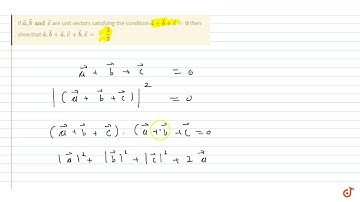 If a⃗, b⃗ and c⃗ are unit vectors satisfying the condition a⃗ + b⃗ + c⃗ = 0 then
show that a⃗. b⃗ + a⃗. c⃗ + b⃗. c⃗ =
a⃗ + b⃗ + c⃗ = 0
|(a⃗ + b⃗ + c⃗)|² = 0
(a⃗ + b⃗ + c⃗) . (a⃗ + b⃗ + c⃗ = 0
|a⃗|² + |b⃗|² + |c⃗|² + 2 a⃗